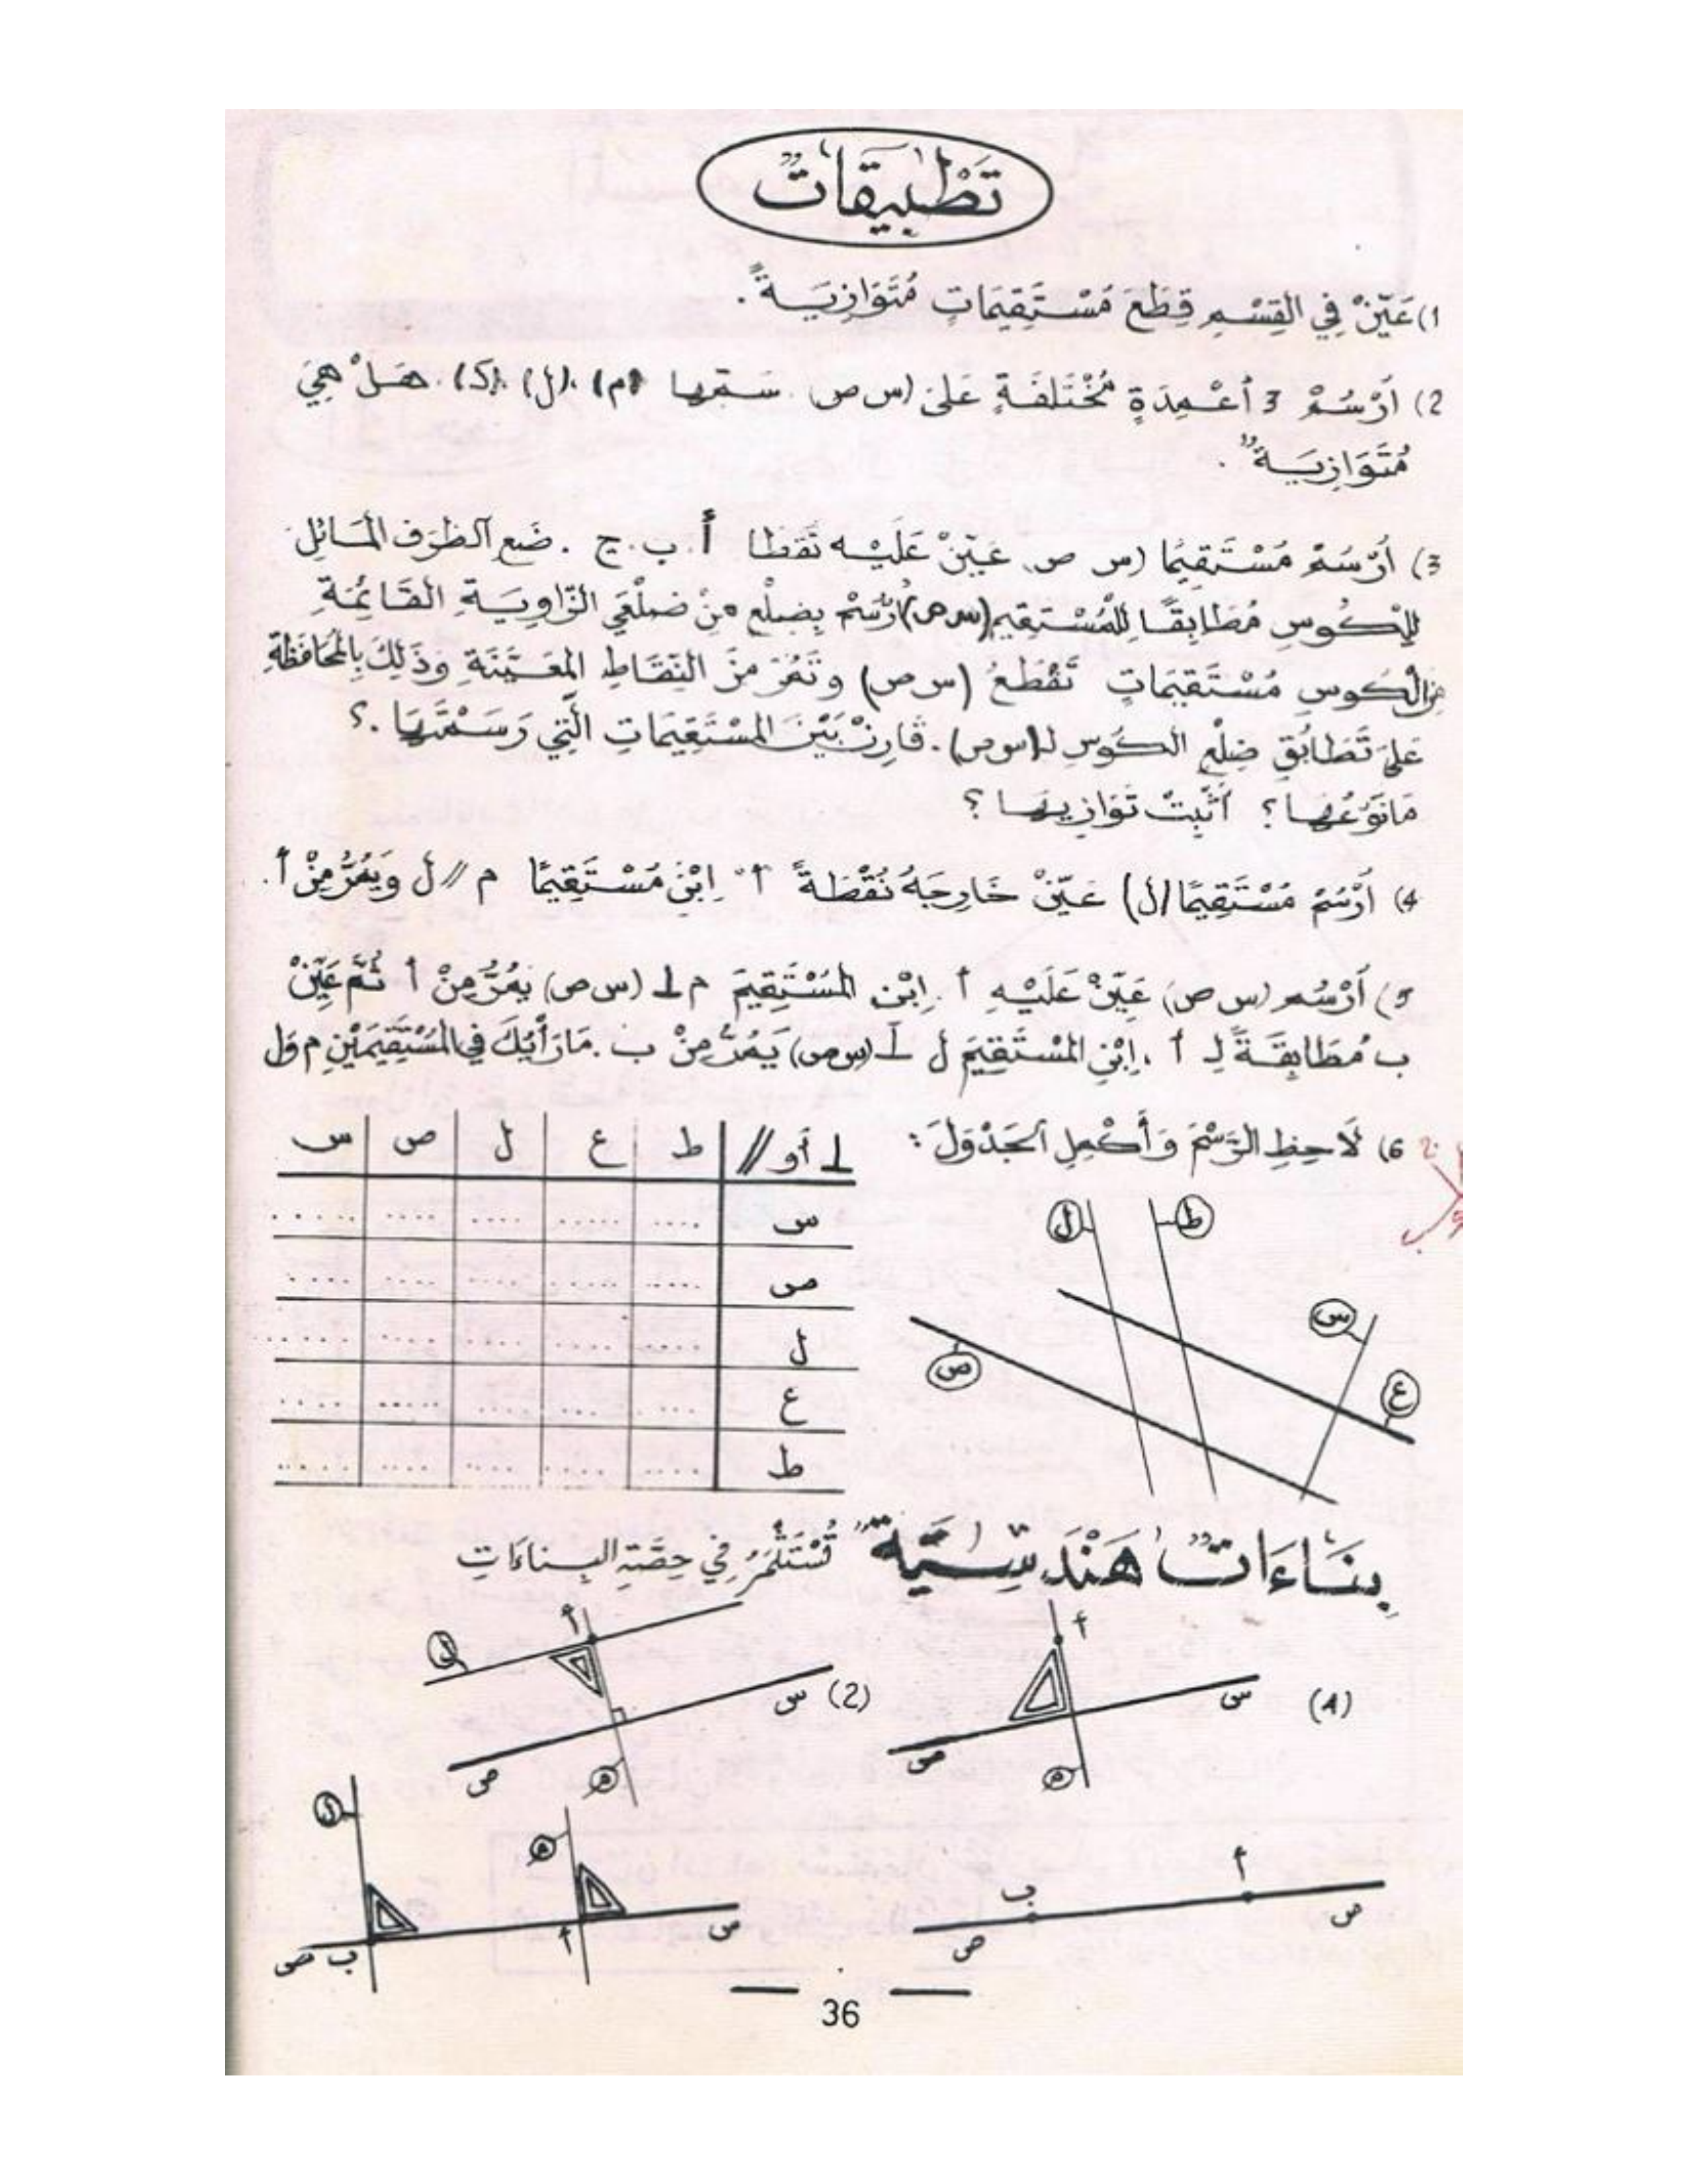 تَطْبِيقَاتٌ
1) عَيِّنْ فِي القِسْمِ قِطَعَ مُسْتَقِيمَاتٍ مُتَوَازِيَةً .
2) أُرْسُمْ 3 أَعْمِدَةٍ مُخْتَلِفَةٍ عَلَى (س ص . سَمِّهَا (م) ، (ل) ، (ك) . هَلْ هِيَ
مُتَوَازِيَةٌ .
3) أُرْسُمْ مُسْتَقِيمًا (س ص . عَيِّنْ عَلَيْهِ نَقَطًا أ . ب . ج . ضَعِ الطَّرَفَ المَائِلَ
لِلْكُوسِ مُطَابِقًا لِلْمُسْتَقِيمِ (س ص) أُرْسُمْ بِضِلْعٍ مِنْ ضِلْعَيِ الزَّاوِيَةِ القَائِمَةِ
مِنَ الْكُوسِ مُسْتَقِيمَاتٍ تَقْطَعُ (س ص) وَتَمُرُّ مِنَ النِّقَاطِ المُعَيَّنَةِ وَذَلِكَ بِالْمُحَافَظَةِ
عَلَى تَطَابُقِ ضِلْعِ الكُوسِ لـ (س ص) . قَارِنْ بَيْنَ المُسْتَقِيمَاتِ الَّتِي رَسَمْتَهَا . ؟
مَا نَوْعُهَا ؟ أَثْبِتْ تَوَازِيهَا ؟
4) أُرْسُمْ مُسْتَقِيمًا (ل) عَيِّنْ خَارِجَهُ نُقْطَةً أ . اِبْنِ مُسْتَقِيمًا م // ل وَيَمُرُّ مِنْ أ .
5) أُرْسُمْ (س ص) عَيِّنْ عَلَيْهِ أ . اِبْنِ المُسْتَقِيمَ م ⊥ (س ص) يَمُرُّ مِنْ أ ثُمَّ عَيِّنْ
ب مُطَابِقَةً لِـ أ . اِبْنِ المُسْتَقِيمَ ل ⊥ (س ص) يَمُرُّ مِنْ ب . مَا رَأْيُكَ فِي المُسْتَقِيمَيْنِ م وَ ل
6) لَاحِظِ الرَّسْمَ وَأَكْمِلِ الجَدْوَلَ :
⊥ أو // ط ع ل ص س
س ..... ..... ..... ..... .....
ص ..... ..... ..... ..... .....
ل ..... ..... ..... ..... .....
ع ..... ..... ..... ..... .....
ط ..... ..... ..... ..... .....
ل ط
س
ص
ع
بِنَاءَاتٌ هَنْدَسِيَّةٌ تُسْتَثْمَرُ فِي حِصَّةِ البِنَاءَاتِ
(1) أ س ص م
(2) أ ل س ص م
أ ب س ص
ل م أ ب س ص
36